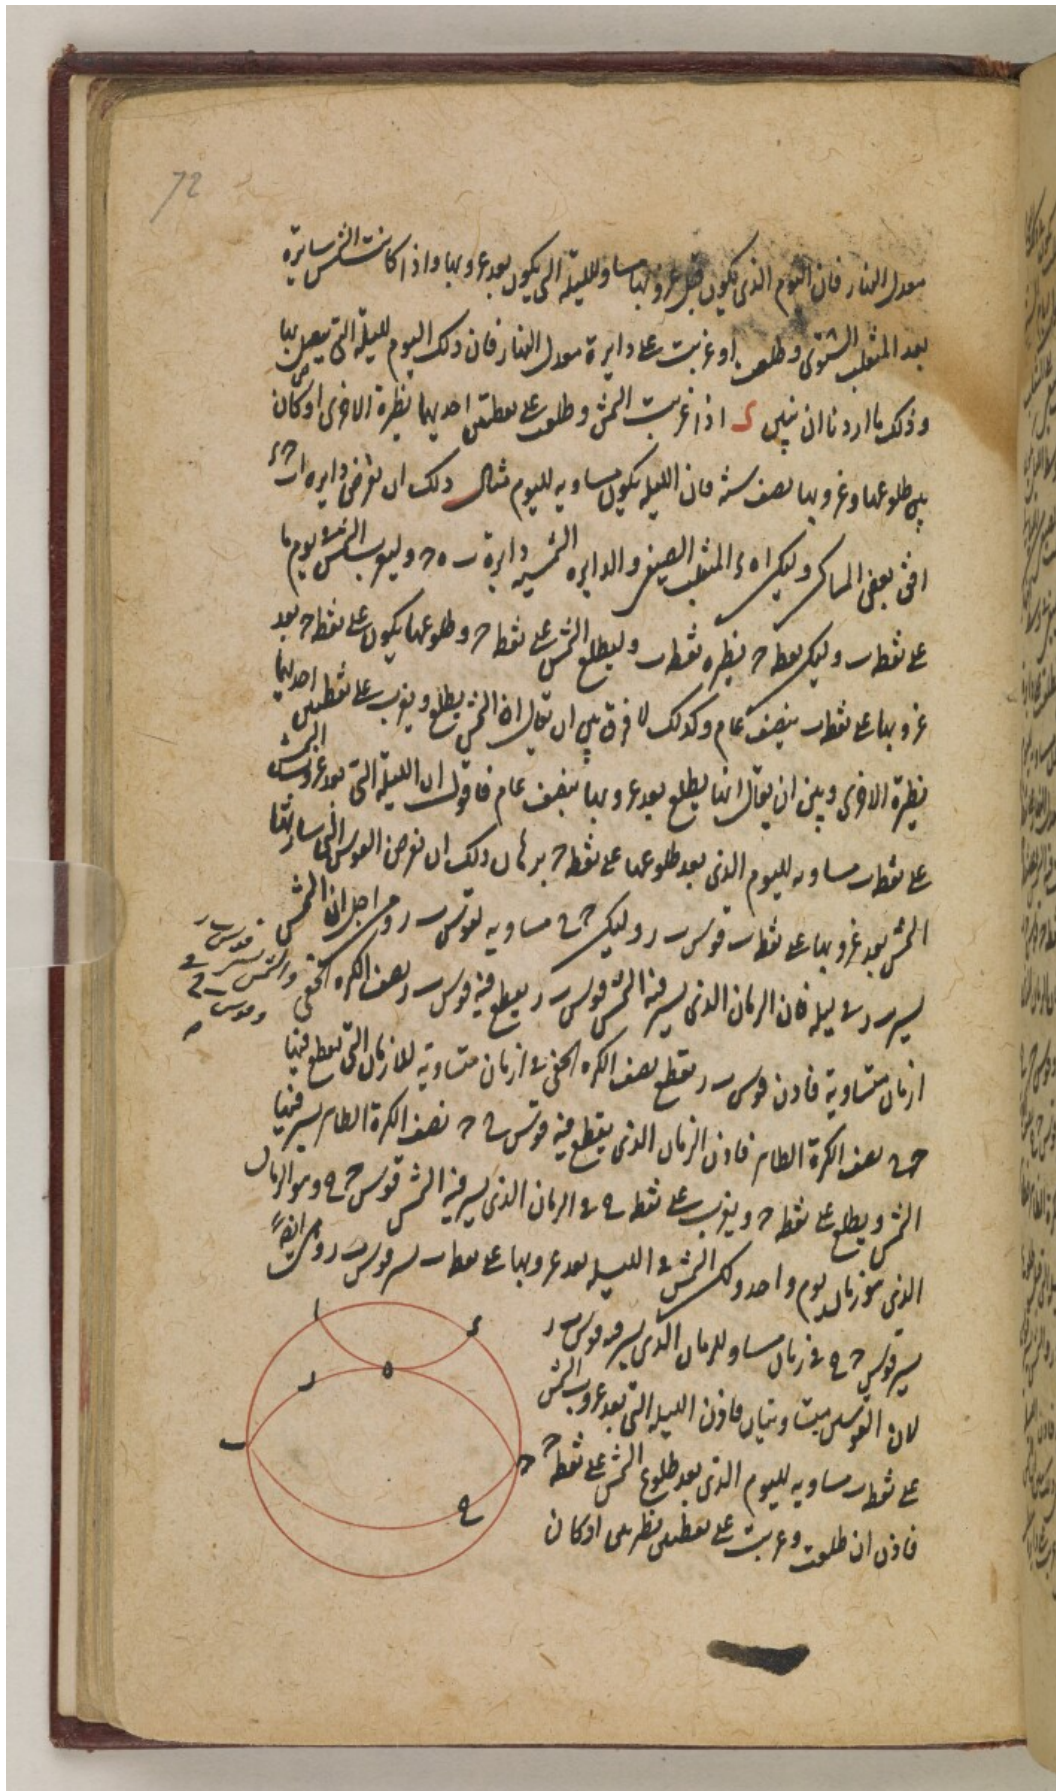 72
معدل النهار فان اليوم الذى يكون قبل غروبها مساو لليلة التى يكون بعد غروبها واذا كانت الشمس سايرة
بعد المنقلب الشتوى وطلعت او غربت على دايرة معدل النهار فان ذلك اليوم لليلة التى بها
وذلك ما اردنا ان نبين ى اذا غربت الشمس وطلعت على نقطتين احديهما نظيرة الاخرى او كان
بين طلوعها وغروبها نصف سنة فان الليلة يكون مساويه لليوم مثال ذلك ان نفرض دايره ا ب ح د
افق بعض المساكن وليكن ا ه د المنقلب الصيفى والدايره الشمسيه دايرة ب ه ح وليغرب الشمس يوم ما
على نقطة ب وليكن نقطة ح نظيره نقطة ب وليطلع الشمس على نقطة ح وطلوعها يكون على نقطة ح بعد
غروبها على نقطة ب بنصف عام وكذلك لا فرق بين ان يقال ان الشمس يطلع ويغرب على نقطتين احديهما
نظيرة الاخرى وبين ان يقال انها يطلع بعد غروبها بنصف عام فاقول ان الليلة التى بعد غروب الشمس
على نقطة ب مساويه لليوم الذى بعد طلوعها على نقطة ح برهان ذلك ان نفرض القوس التى سارتها
الشمس بعد غروبها على نقطة ب قوس ب ر وليكن ح ع مساويه لقوس ب ر ومن اجل ان الشمس
يسير ب ر فى ليله فان الزمان الذى يسير فيه الشمس قوس ب ر يقطع فيه قوس ب ر نصف الكره الخفى
ازمان متساوية فاذن قوس ب ر تقطع نصف الكره الخفى فى ازمان متساوية للازمان التى تقطع فيها
ح ع نصف الكرة الظاهر فاذن الزمان الذى يقطع فيه قوس ع ح نصف الكرة الظاهر يسير فيها
الشمس ويطلع على نقطة ح ويغرب على نقطة ع فى الزمان الذى يسير فيه الشمس قوس ح ع وهو الزمان
الذى هو زمان يوم واحد ولكن الشمس فى الليلة بعد غروبها على نقطة ب يسير قوس ب ر وهى ايضا
يسير قوس ح ع فى زمان مساو للزمان الذى يسير فيه قوس ب ر
لان القوسين متساويتان فاذن الليلة التى بعد غروب الشمس
على نقطة ب مساويه لليوم الذى بعد طلوع الشمس على نقطة ح
فاذن ان طلعت وغربت على نقطتين نظيرتين او كان
ا
د
ه
ر
ب
ح
ع